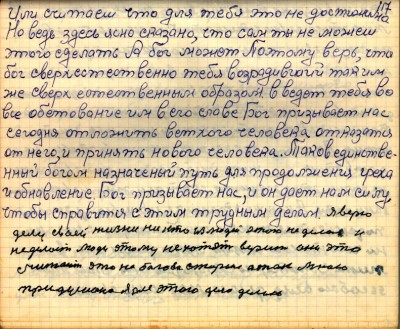 117
Или считаем что для тебя это не достижима
Но ведь здесь ясно сказано, что сам ты не можеш
этого сделать А бог может Поэтому верь, что
бог сверхестественно тебя возрадивший таким
же сверх естественным образом введет тебя во
все обетование им в его славе Бог призывает нас
сегодня отложить ветхого человека отказатся
от него, и принять нового человека. Таков единстве-
нный богом назначеный путь для продолжения греха
и обнавление Бог призывает нас, и он дает нам силу,
чтобы справится с этим трудным делом. Я верю
делу своей жизни ни кто из людей этого не делае и
неделает люди этому не хотят верит они это
считают это не богова сторони а так много
придумона для этого дело делае